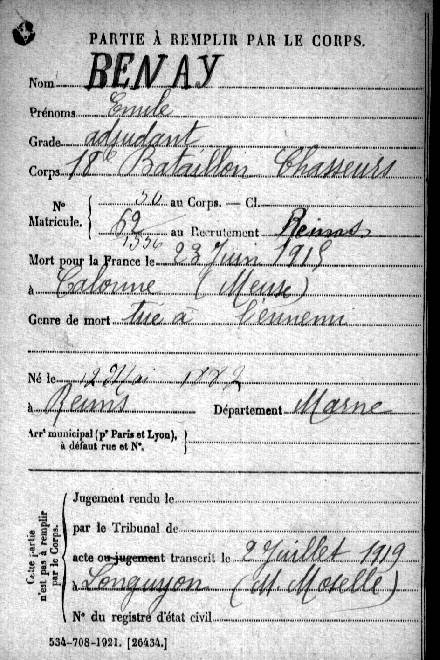 PARTIE À REMPLIR PAR LE CORPS.
Nom BENAY
Prénoms Emile
Grade adjudant
Corps 18e Bataillon Chasseurs
N° Matricule. 50 au Corps. — Cl.
69
1336 au Recrutement Reims
Mort pour la France le 23 Juin 1915
à Calonne (Meuse)
Genre de mort tué à l'ennemi
Né le 12 Mai 1882
à Reims Département Marne
Arrt municipal (pr Paris et Lyon), à défaut rue et N°.
Cette partie n'est pas à remplir par le Corps.
Jugement rendu le
par le Tribunal de
acte ou jugement transcrit le 2 Juillet 1919
à Longuyon (M Moselle)
N° du registre d'état civil
534-708-1921. [26434.]